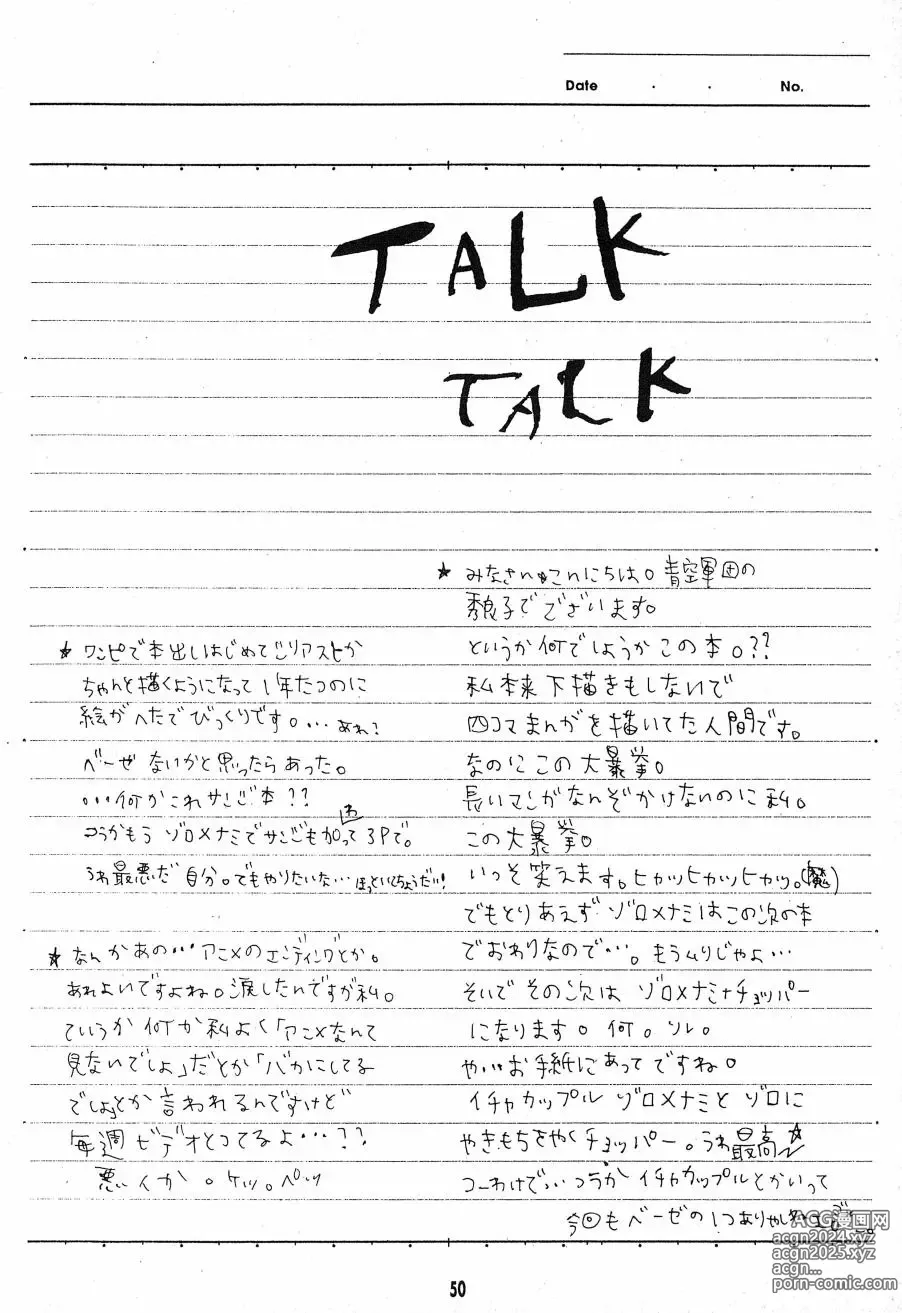 Date . . No.
TALK
TALK
★ みなさんこんにちは。青空軍団の
秀良子でございます。
というか何でしょうかこの本。??
私本来下描きもしないで
四コマまんがを描いてた人間です。
なのにこの大暴挙。
長いマンガなんぞかけないのに私。
この大暴挙。
いっそ笑えます。ヒカッヒカッヒカッ。(魔)
でもとりあえずゾロ×ナミはこの次の本
でおわりなので…。もうムリじゃよ…
そいでその次はゾロ×ナミ+チョッパー
になります。何。ソレ。
や…お手紙にあってですね。
イチャカップルゾロ×ナミとゾロに
やきもちをやくチョッパー。うわ最高☆
つーわけで…つうかイチャカップルとかいって
今回もベーゼの1つありゃし
★ ワンピで本出しはじめて
ちゃんと描くようになって1年たつのに
絵がへたでびっくりです。…あれ?
ベーゼないかと思ったらあった。
…何かこれサンジ本??
つうかもうゾロ×ナミでサンジも加わって3Pで。
うわ最悪だ自分。でもやりたいな…ほっといてちょうだい!
★ なんかあの…アニメのエンディングとか。
あれよいですよね。涙したんですが私。
ていうか何か私よく「アニメなんて
見ないでしょ」だとか「バカにしてる
でしょ」とか言われるんですけど
毎週ビデオとってるよ…??
悪いか。ケッ。ペッ
50
ACG漫画网
acgn2024.xyz
acgn2025.xyz
acgn...
porn-comic.com